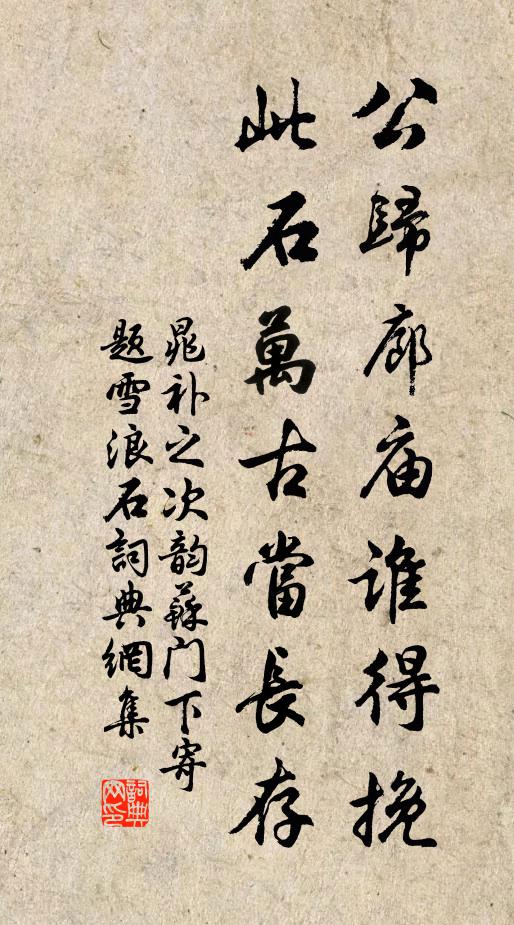 公歸廊庙誰得挽
此石萬古當長存
晁补之次韵蘇门下寄
题雪浪石詞典網集
詞典网印